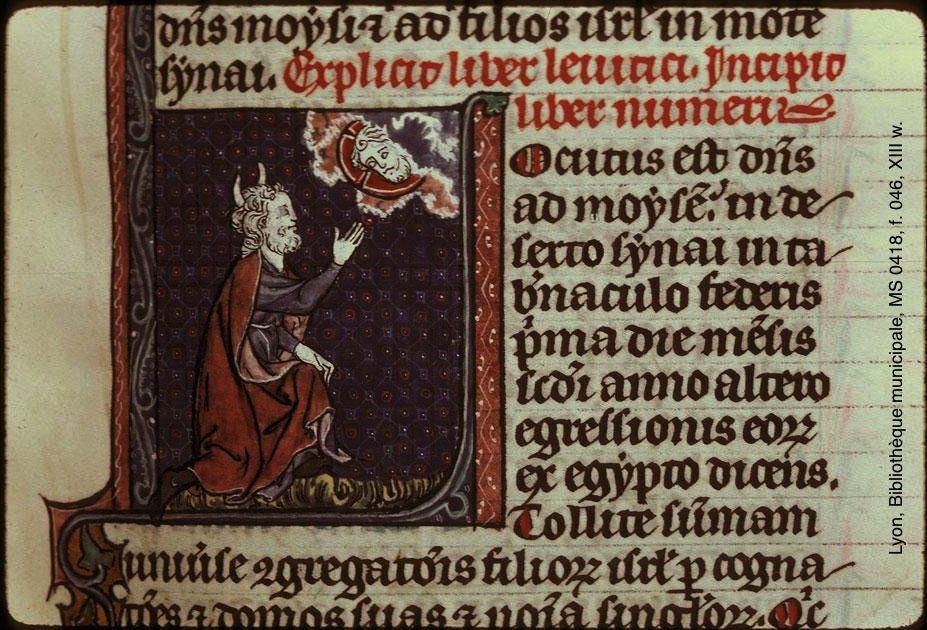 dn̄s moysi ⁊ ad filios isrl̄ in mōte
synai. Explicit liber leuitici. Incipit
liber numeri
Ocutus est dn̄s
ad moysē. in de
serto synai in ta
b̄naculo federis
p̄ma die mēsis
scd̄i anno altero
egressionis eoꝝ
ex egypto dicens.
Tollite sūmam
uniuer̄se ꝯgregatōis filioꝝ isrl̄ ꝑ cogna
tōes ⁊ domos suas ⁊ noīa singl̄oꝝ.
Lyon, Bibliothèque municipale, MS 0418, f. 046, XIII w.